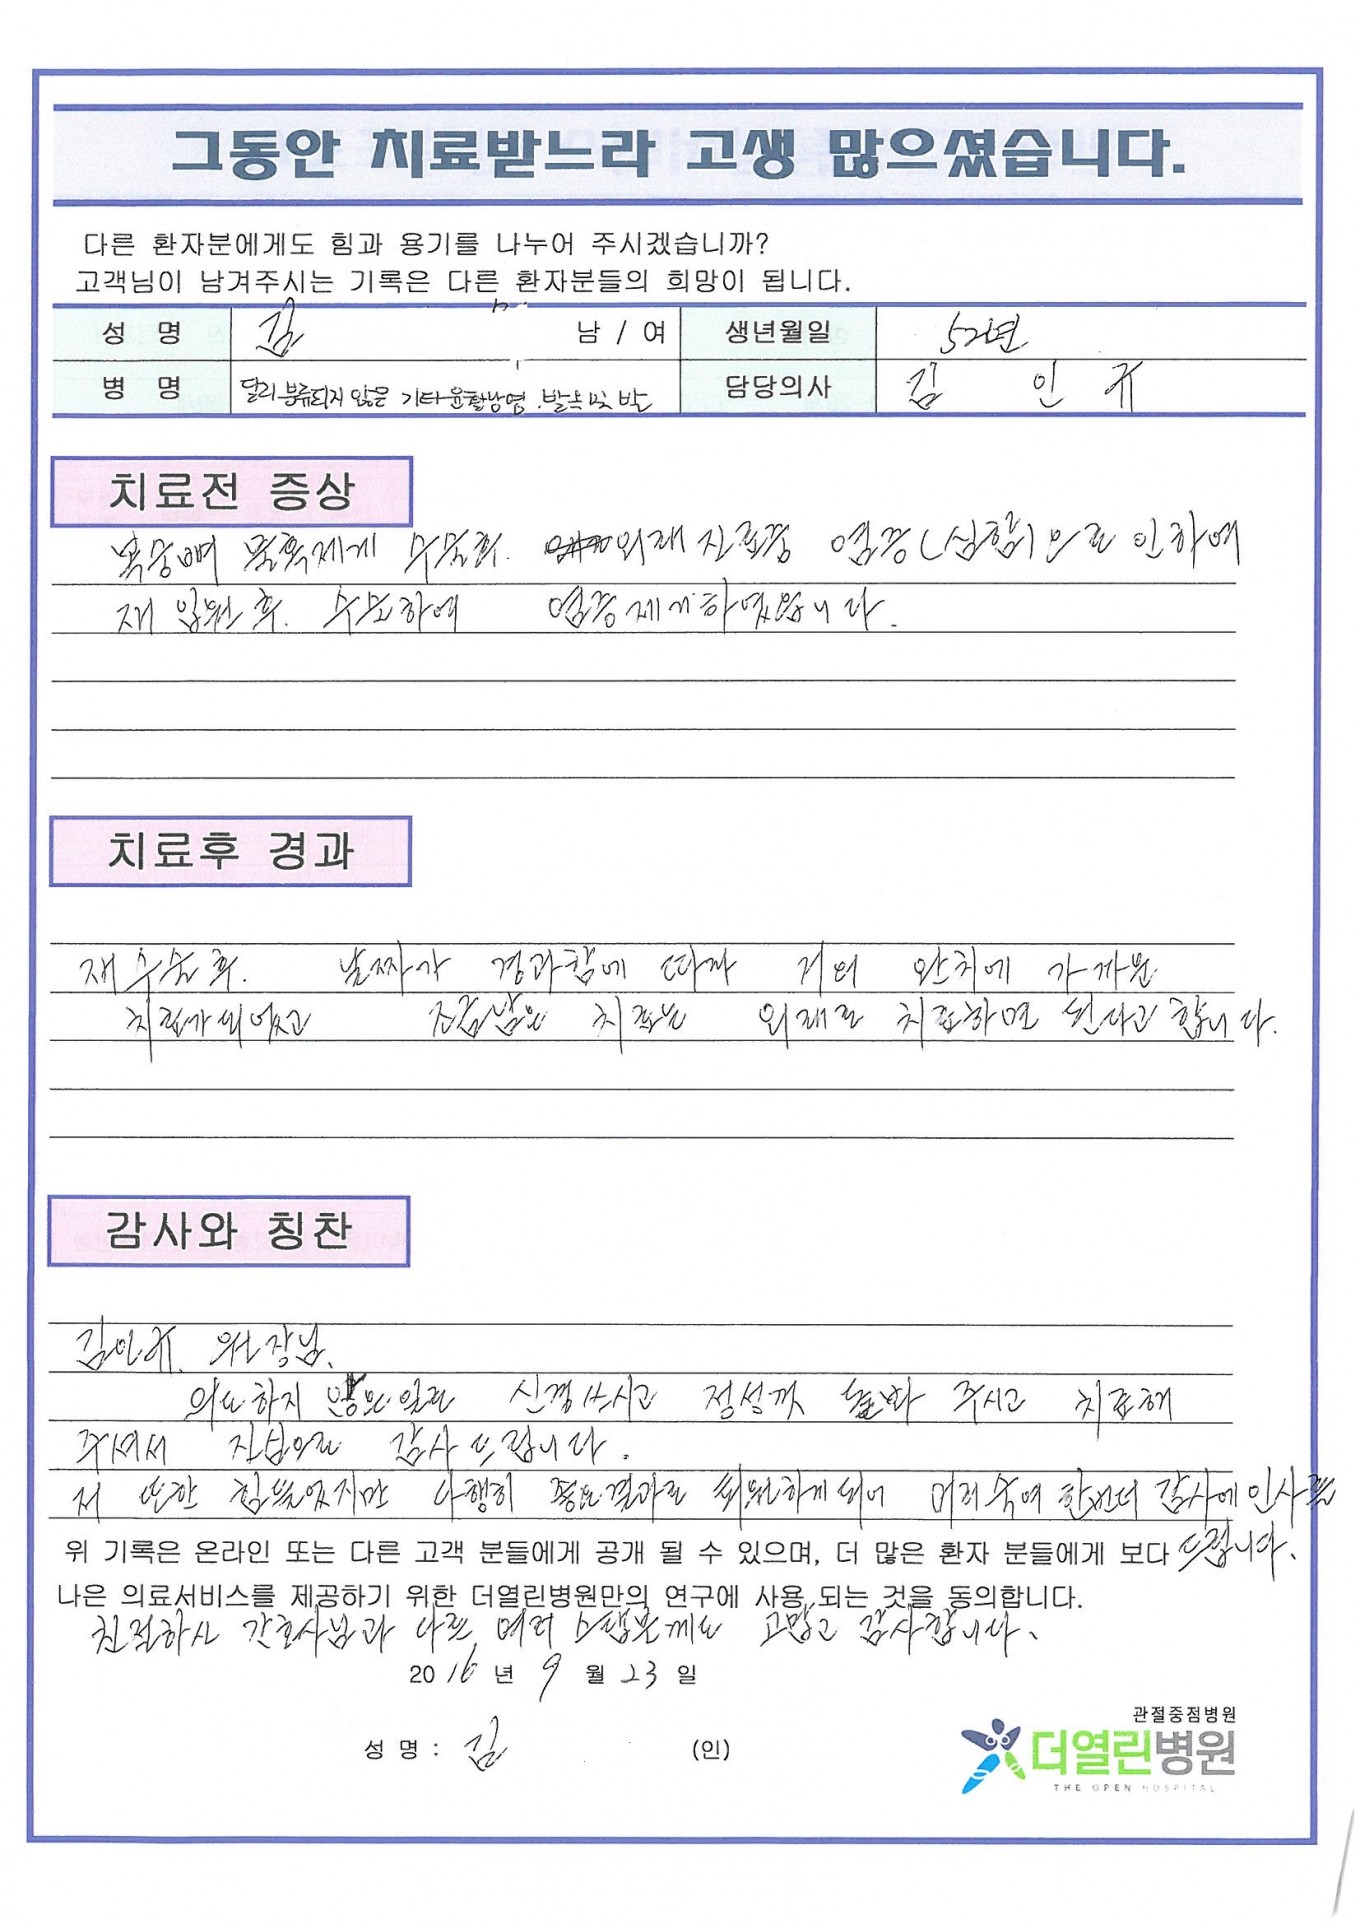 그동안 치료받느라 고생 많으셨습니다.
다른 환자분에게도 힘과 용기를 나누어 주시겠습니까?
고객님이 남겨주시는 기록은 다른 환자분들의 희망이 됩니다.
성 명 김 남 / 여 생년월일 52년
병 명 달리 분류되지 않은 기타 윤활낭염. 발목 및 발 담당의사 김 인 규
치료전 증상
복숭뼈 물혹제게 수술후. 외래 진료중 염증(심함)으로 인하여
재 입원 후. 수술하여 염증제게하였읍니다.
치료후 경과
재수술후. 날짜가 경과함에 따라 거의 완치에 가까운
치료가되었고 조금남은 치료는 외래로 치료하면 된다고 합니다.
감사와 칭찬
김인규. 원장님.
의도하지 않은일로 신경쓰시고 정성껏 돌봐 주시고 치료해
주셔서 진심으로 감사드립니다.
저 또한 힘들었지만 다행히 좋은결과로 퇴원하게되어 머리숙여 한번더 감사에인사를
위 기록은 온라인 또는 다른 고객 분들에게 공개 될 수 있으며, 더 많은 환자 분들에게 보다 드립니다.
나은 의료서비스를 제공하기 위한 더열린병원만의 연구에 사용 되는 것을 동의합니다.
친절하신 간호사님과 다른 여러 스탭분께도 고맙고 감사합니다.
2016 년 9 월 23 일
성 명 : 김 (인)
관절중점병원
더열린병원
THE OPEN HOSPITAL